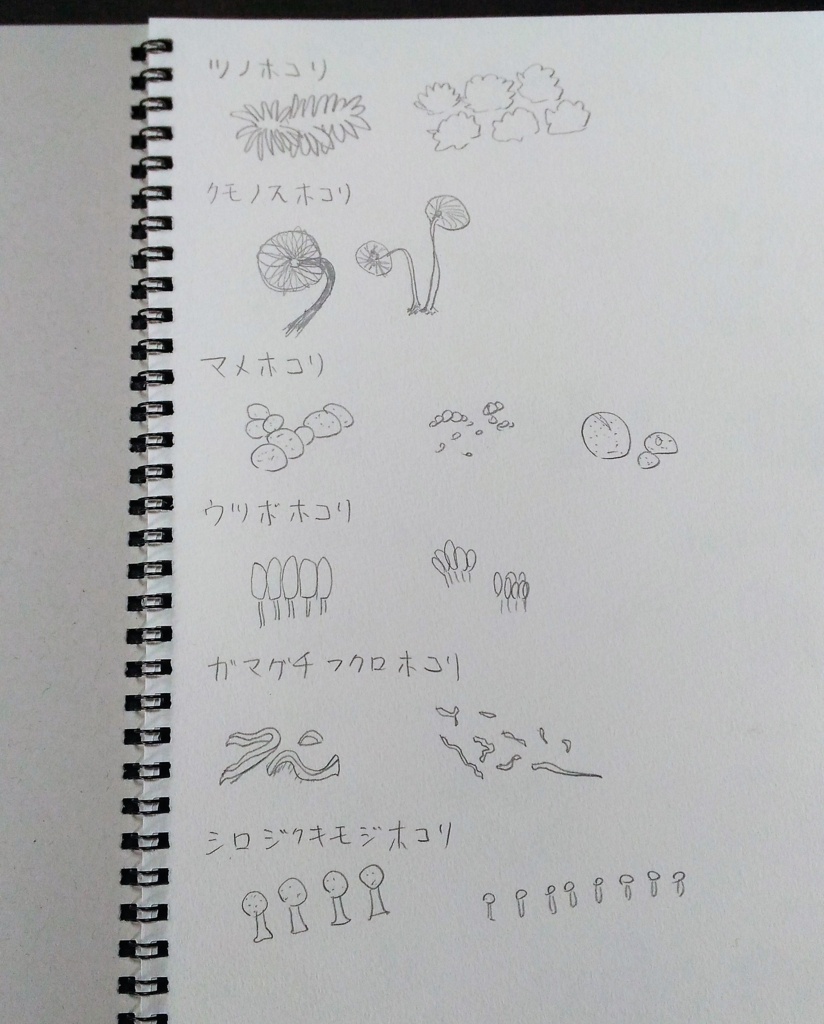 ツノホコリ
クモノスホコリ
マメホコリ
ウツボホコリ
ガマグチフクロホコリ
シロジクキモジホコリ